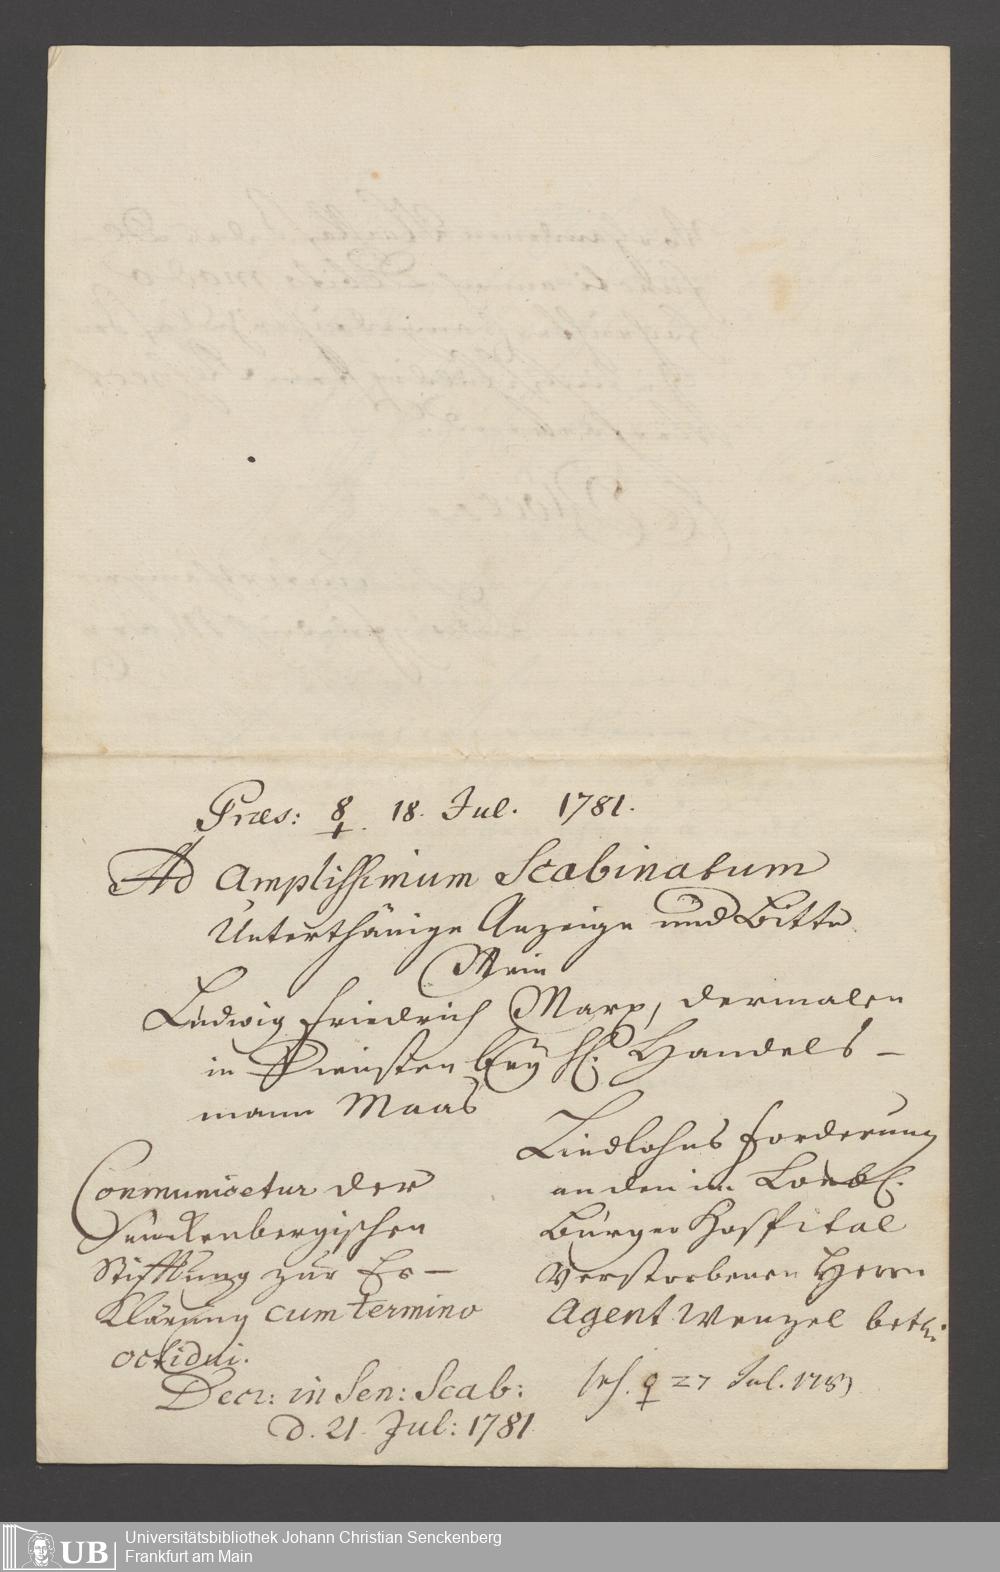 Præs: ☿. 18. Jul. 1781.
Ad Amplissimum Scabinatum
Unterthänige Anzeige und Bitte
Mein
Ludwig Friedrich Marx, dermalen
in Diensten bey H. Handels-
mann Maas
Liedlohns Forderung
an den im Löbl.
Bürger Hospital
verstorbenen Herrn
Agent Wenzel betr.
Communicetur der
Senckenbergischen
Stifftung zur Er-
klärung cum termino
octidui.
Decr: in Sen: Scab:
d. 21. Jul: 1781
♀ 27 Jul. 1781
UB
Universitätsbibliothek Johann Christian Senckenberg
Frankfurt am Main